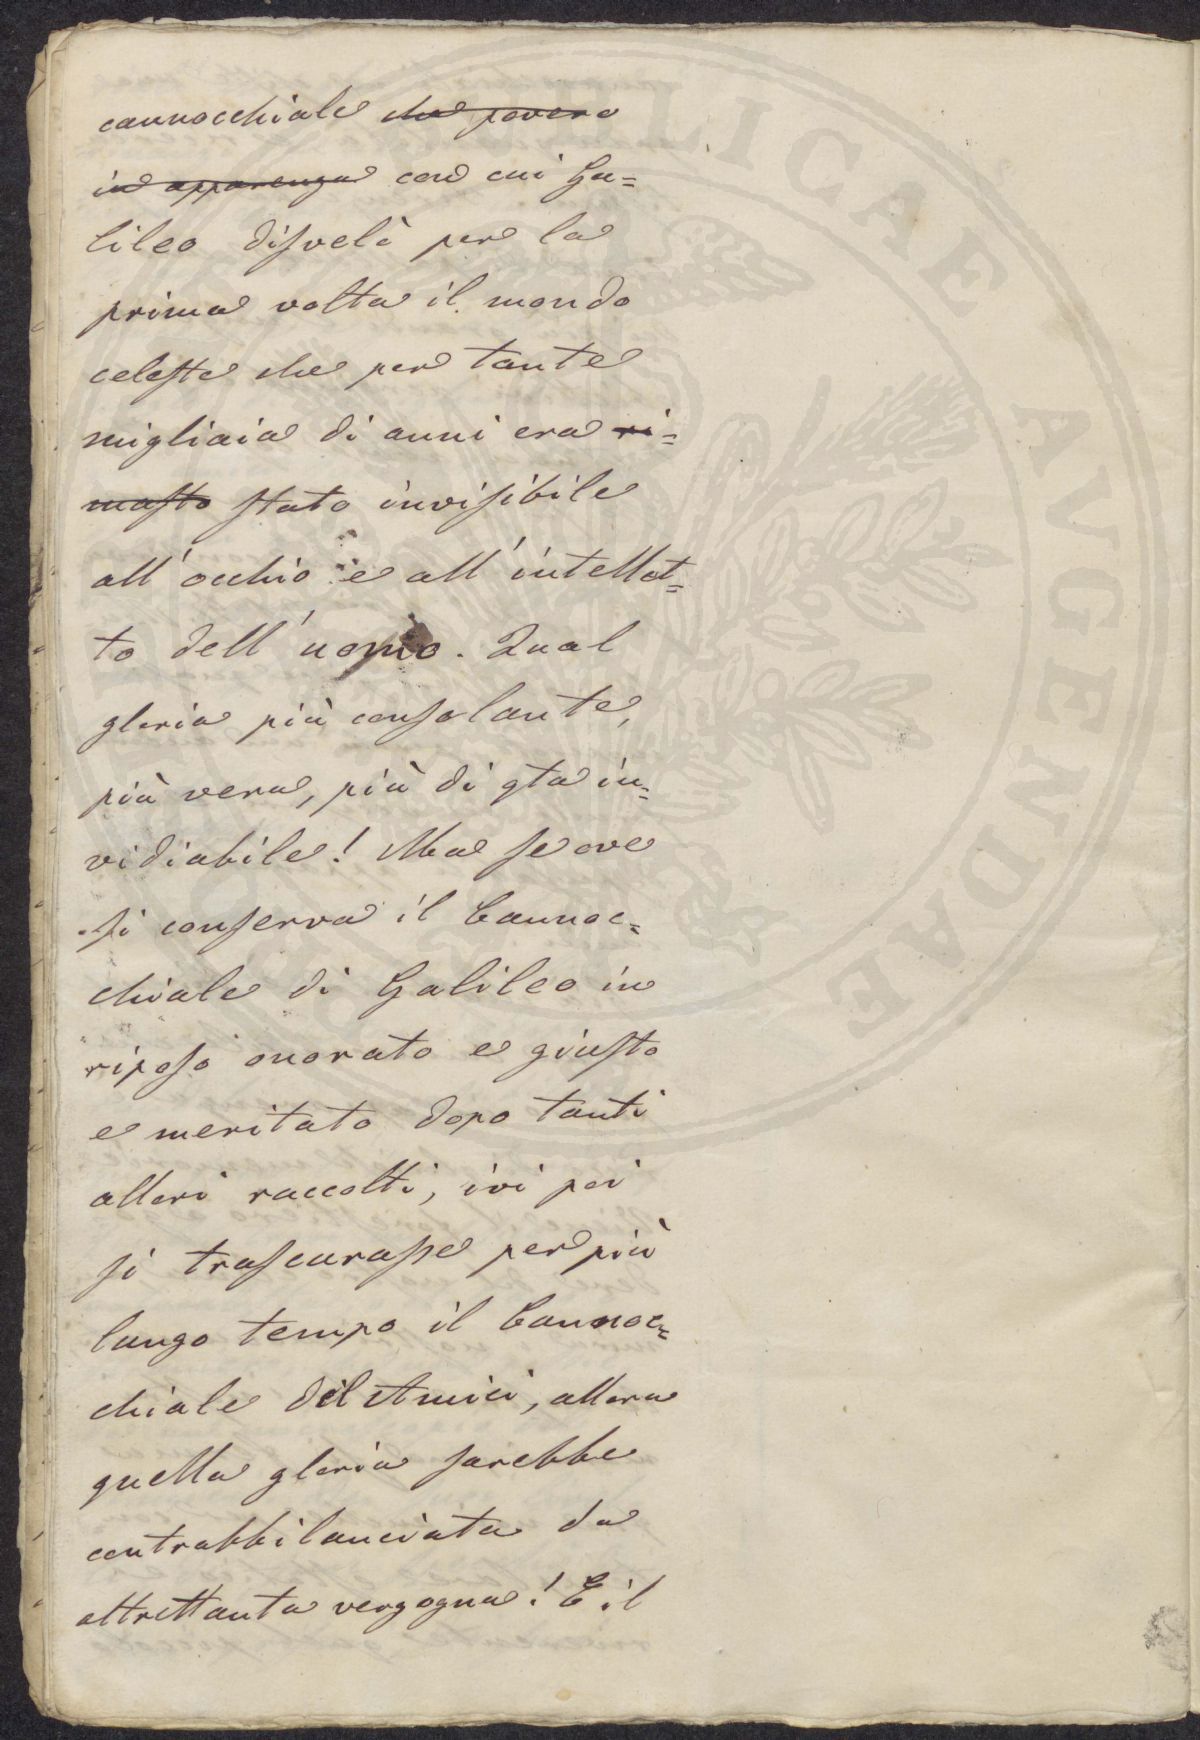 cannocchiale che povero
in apparenza con cui Ga=
lileo disvelò per la
prima volta il mondo
celeste che per tante
migliaia di anni era ri=
masto stato invisibile
all'occhio e all'intellet=
to dell'uomo. Qual
gloria più consolante,
più vera, più di qta in=
vidiabile! Ma se ove
si conserva il Cannoc=
chiale di Galileo in
riposo onorato e giusto
e meritato dopo tanti
allori raccolti, ivi poi
si trascurasse per più
lungo tempo il Cannoc=
chiale dell Amici, allora
quella gloria sarebbe
contrabbilanciata da
altrettanta vergogna! E il
PUBLICAE AVGENDAE